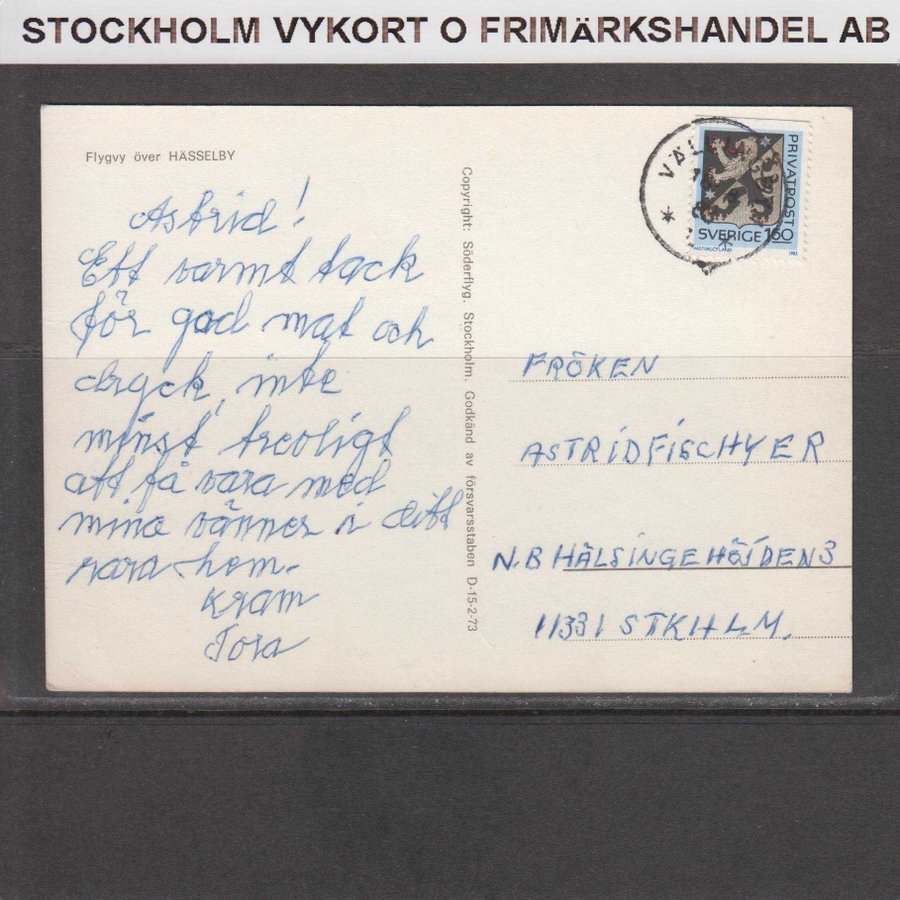 STOCKHOLM VYKORT O FRIMÄRKSHANDEL AB
Flygvy över HÄSSELBY
Astrid!
Ett varmt tack
för god mat och
dryck, inte
minst treoligt
att få vara med
mina vänner i ditt
rara hem.
Kram
Tora
Copyright: Söderflyg. Stockholm. Godkänd av försvarsstaben D-15-2-73
PRIVATPOST
SVERIGE 160
VÄSTERGÖTLAND
FRÖKEN
ASTRID FISCHYER
N.B HÄLSINGEHÖJDEN 3
11331 STKHLM.